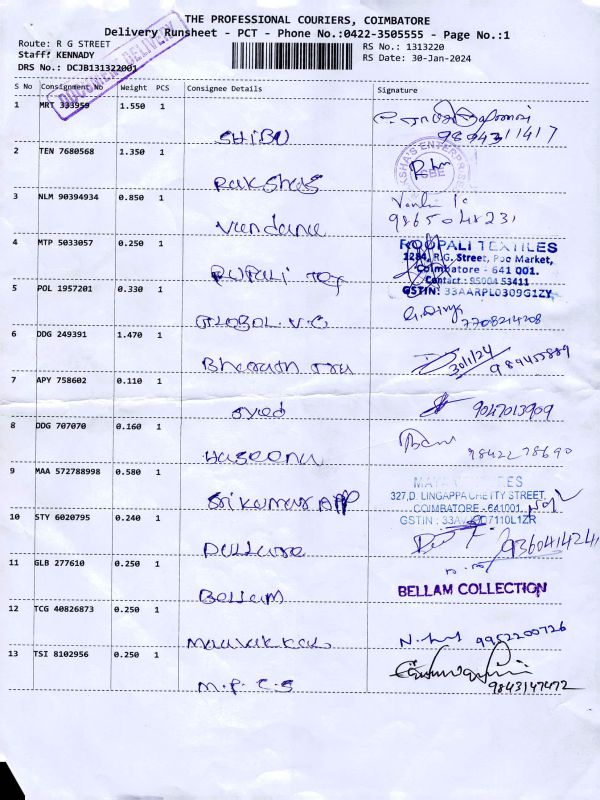 THE PROFESSIONAL COURIERS, COIMBATORE
Delivery Runsheet - PCT - Phone No.:0422-3505555 - Page No.:1
Route: R G STREET
RS No.: 1313220
Staff: KENNADY
RS Date: 30-Jan-2024
DRS No.: DCJB131322001
DOCUMENT DELIVERY
S No Consignment No Weight PCS Consignee Details Signature
1 MRT 333959 1.550 1
SHIBU
9894311417
2 TEN 7680568 1.350 1
Rakshas
3 NLM 90394934 0.850 1
Vandana
9865048231
4 MTP 5033057 0.250 1
Rupali Tex
ROOPALI TEXTILES
1284, R.G. Street, Poo Market,
Coimbatore - 641 001.
Contact : 95004 53411
GSTIN: 33AARPL0309G1ZY
5 POL 1957201 0.330 1
GLOBOL V.C
7708214208
6 DDG 249391 1.470 1
Bharath
30/1/24
7 APY 758602 0.110 1
Syed
9047013909
8 DDG 707070 0.160 1
Haseena
9842278690
9 MAA 572788998 0.580 1
Sri kumar APP
327,D. LINGAPPA CHETTY STREET,
COIMBATORE - 641001.
GSTIN :
10 STY 6020795 0.240 1
9360414241
11 GLB 277610 0.250 1
Bellam
BELLAM COLLECTION
12 TCG 40826873 0.250 1
9952200726
13 TSI 8102956 0.250 1
M.P.C.S
9843147472